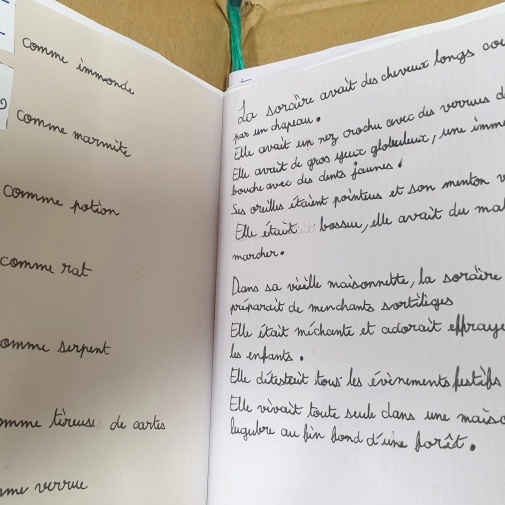 comme immonde
comme marmite
comme potion
comme rat
comme serpent
comme tireuse de cartes
comme verrue
La sorcière avait des cheveux longs
par un chapeau.
Elle avait un nez crochu avec des verrues
Elle avait de gros yeux globuleux, une
bouche avec des dents jaunes.
Ses oreilles étaient pointues et son menton
Elle était bossue, elle avait du mal
marcher.
Dans sa vieille maisonnette, la sorcière
préparait de menchants sortilèges
Elle était méchante et adorait
les enfants.
Elle détestait tous les évènements festifs
Elle vivait toute seule dans une
lugubre au fin fond d'une forêt.